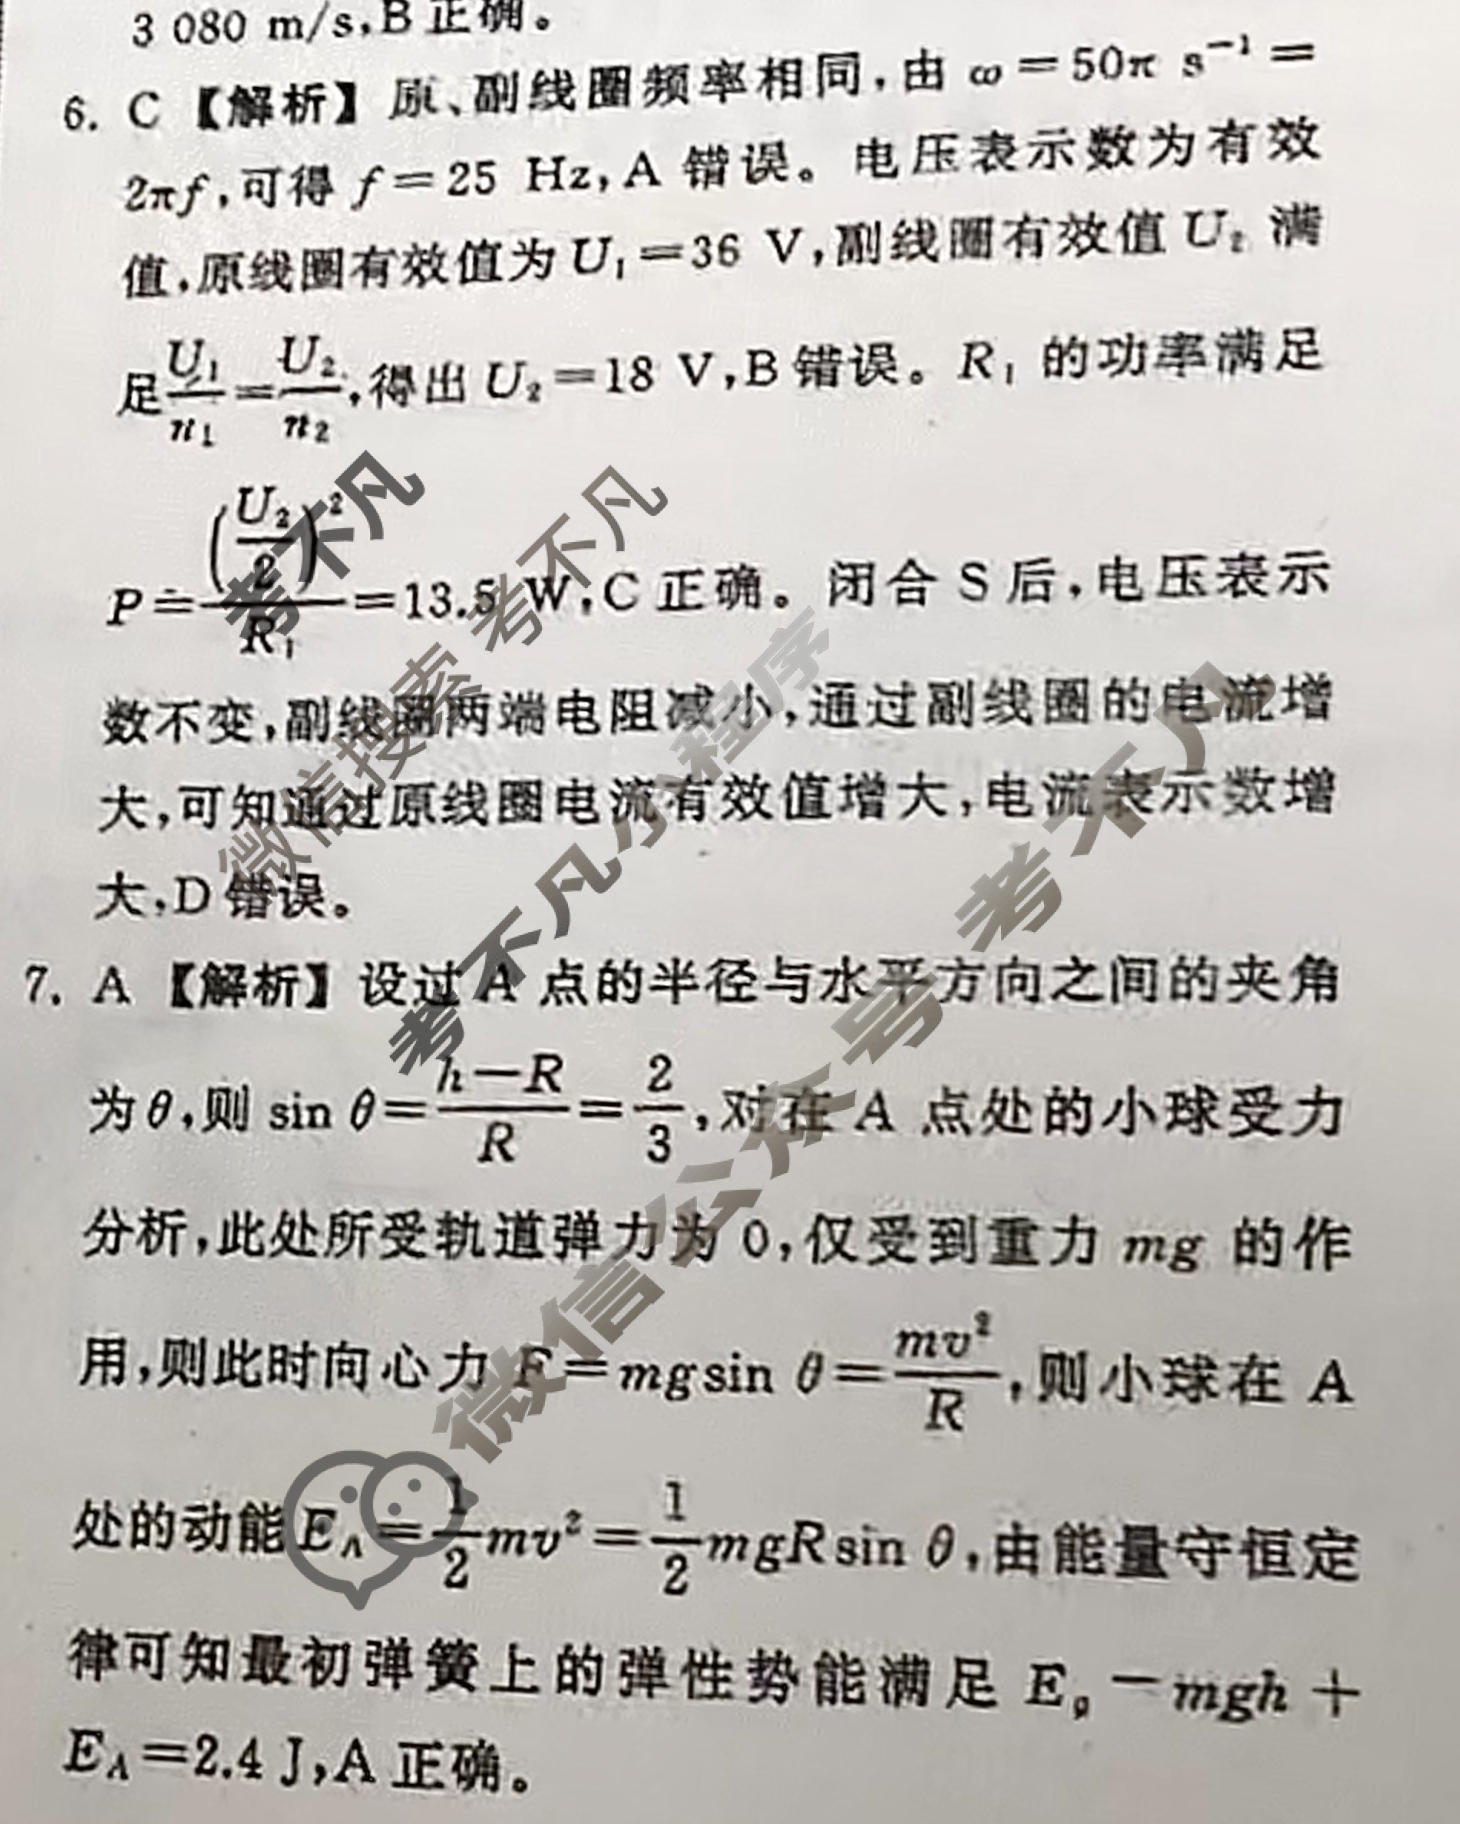 3 080 m/s,B正确。
6. C【解析】原、副线圈频率相同,由 ω=50π s⁻¹=
2πf,可得 f=25 Hz,A 错误。电压表示数为有效
值,原线圈有效值为 U₁=36 V,副线圈有效值 U₂ 满
足U₁/n₁=U₂/n₂,得出 U₂=18 V,B错误。R₁ 的功率满足
P=(U₂/2)²/R₁=13.5 W,C正确。闭合 S 后,电压表示
数不变,副线圈两端电阻减小,通过副线圈的电流增
大,可知通过原线圈电流有效值增大,电流表示数增
大,D错误。
7. A【解析】设过 A 点的半径与水平方向之间的夹角
为θ,则 sin θ=(h-R)/R=2/3,对在 A 点处的小球受力
分析,此处所受轨道弹力为 0,仅受到重力 mg 的作
用,则此时向心力 F=mgsin θ=mv²/R,则小球在 A
处的动能 E_A=1/2mv²=1/2mgRsin θ,由能量守恒定
律可知最初弹簧上的弹性势能满足 Eₚ-mgh+
E_A=2.4 J,A正确。
考不凡
微信搜索 考不凡
考不凡小程序
微信公众号 考不凡